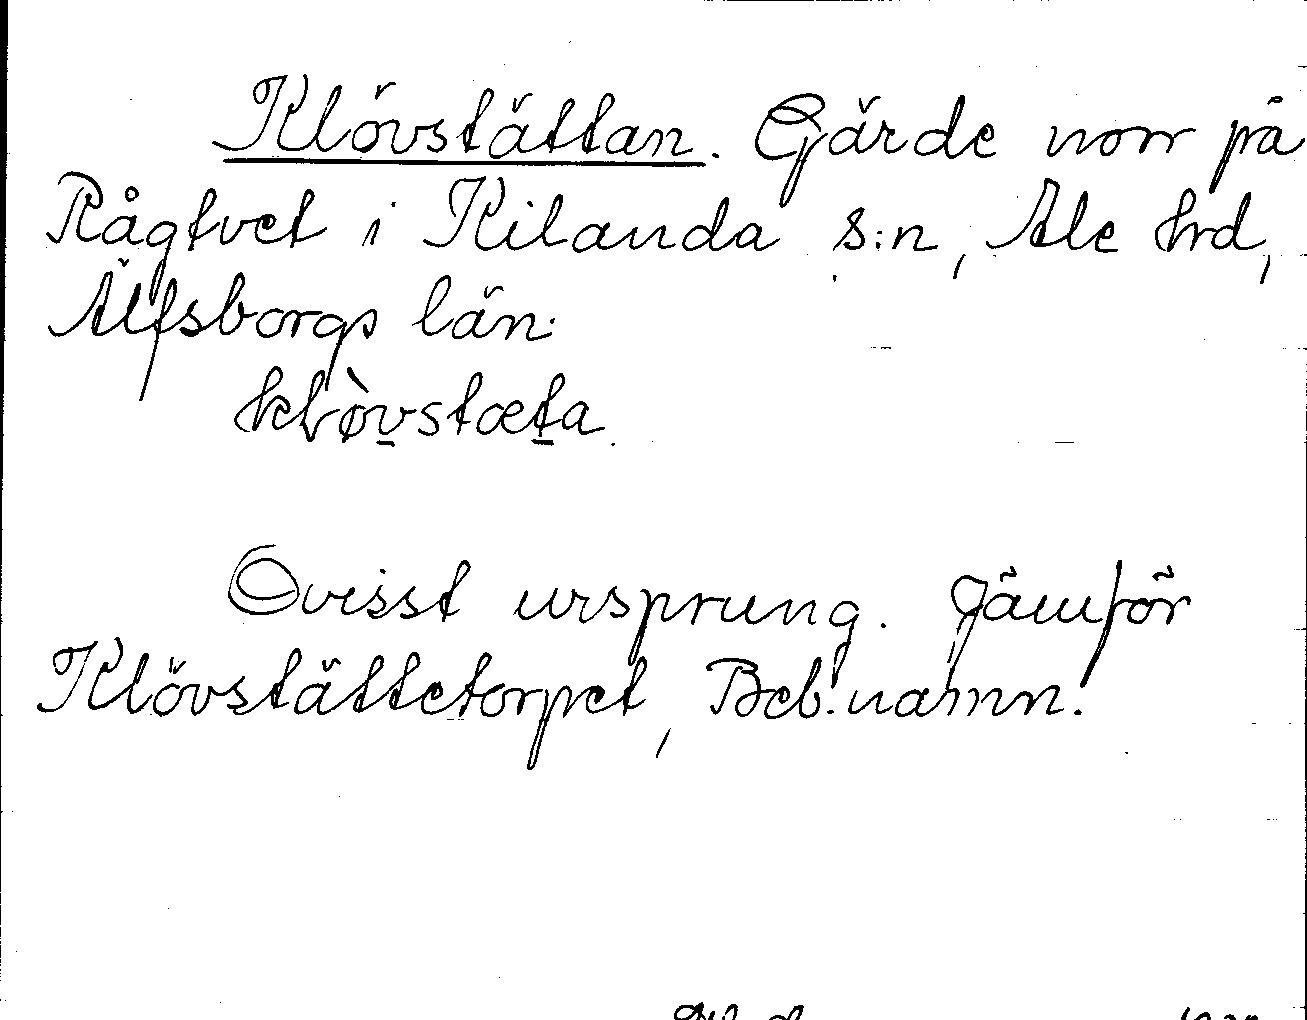 Klövstättan. Gärde norr på
Rågtvet i Kilanda s:n, Ale hrd,
Älfsborgs län.
klòv̲stæt̲a.
Ovisst ursprung. Jämför
Klövstättetorpet, Beb.namn.